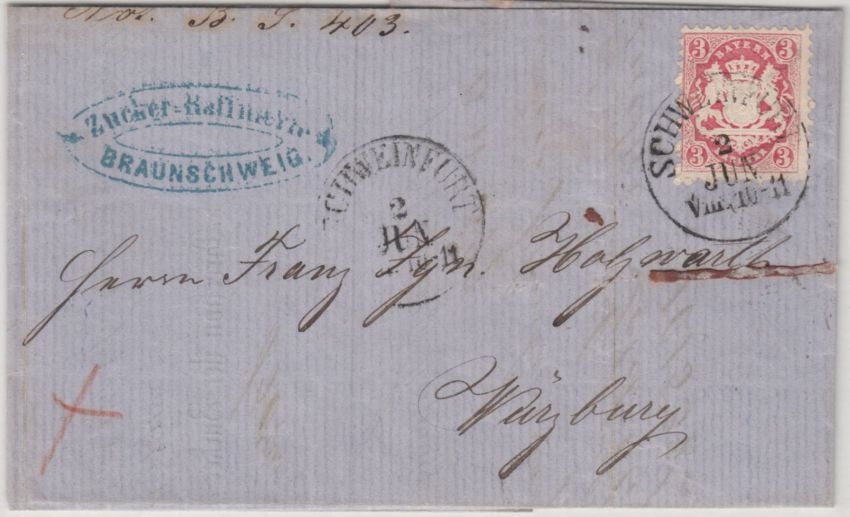 No. B. S. 403.
3 BAYERN 3
3 3
Zucker-Raffinerie
BRAUNSCHWEIG.
SCHWEINFURT
2
JUN
VM. 10-11
SCHWEINFURT
2
JUN
11
Herrn Franz Ign. Holzwarth
Würzburg